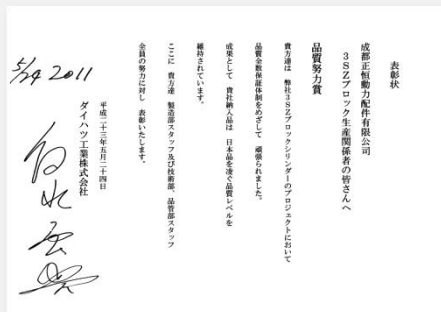 表彰状
成都正恒動力配件有限公司
3SZブロック生産関係者の皆さんへ
品質努力賞
貴方達は 弊社3SZブロックシリンダーのプロジェクトにおいて
品質全数保証体制をめざして 頑張られました。
成果として 貴社納入品は 日本品を凌ぐ品質レベルを
維持されています。
ここに 貴方達 製造部スタッフ及び技術部、品管部スタッフ
全員の努力に対し 表彰いたします。
平成二十三年五月二十四日
ダイハツ工業株式会社
5/24 2011